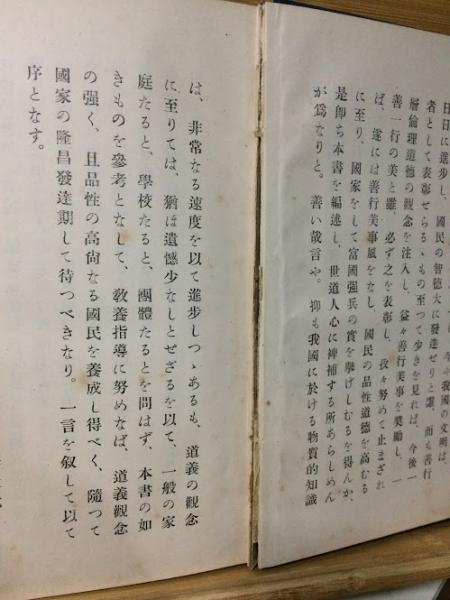 今や我國の文明は、
日日に進步し、國民の智德大に發達せりと雖、而も善行
者として表彰せらるゝもの至つて少きを見れば、今後一
層倫理道德の觀念を注入し、益々善行美事を奬勵し、一
善一行の美と雖、必ず之を表彰し、孜々努めて止まざれ
ば、遂には善行美事風をなし、國民の品性道德を高むる
に至り、國家をして富國强兵の實を擧げしむるを得んか、
是卽ち本書を編述し、世道人心に裨補する所あらしめん
が爲なりと。善い哉言や。抑も我國に於ける物質的知識
は、非常なる速度を以て進步しつゝあるも、道義の觀念
に至りては、猶ほ遺憾少なしとせざるを以て、一般の家
庭たると、學校たると、團體たるとを問はず、本書の如
きものを參考となして、敎養指導に努めなば、道義觀念
の强く、且品性の高尙なる國民を養成し得べく、隨つて
國家の隆昌發達期して待つべきなり。一言を叙して以て
序となす。